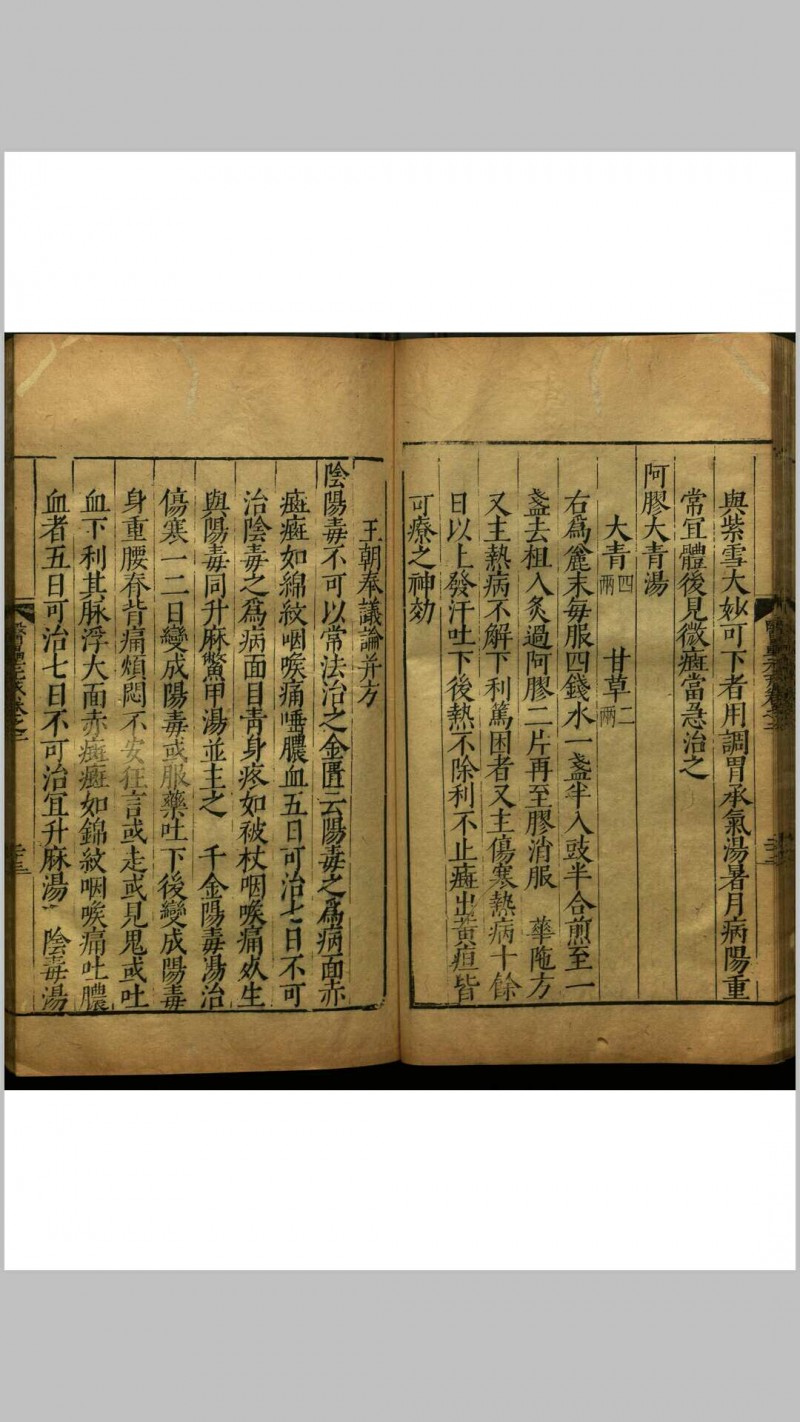 與紫雪大妙可下者用調胃承氣湯暑月病陽重
常宜體後見微癍當急治之
阿膠大青湯
大青四兩 甘草二兩
右為麄末每服四錢水一盞半入豉半合煎至一
盞去柤入炙過阿膠二片再至膠消服 華陁方
又主熱病不解下利篤困者又主傷寒熱病十餘
日以上發汗吐下後熱不除利不止癍出黃疸皆
可療之神効
王朝奉議論并方
陰陽毒不可以常法治之金匱云陽毒之為病面赤
癍癍如綿紋咽喉痛唾膿血五日可治七日不可
治陰毒之為病面目青身疼如被杖咽喉痛死生
與陽毒同升麻鱉甲湯並主之 千金陽毒湯治
傷寒一二日變成陽毒或服藥吐下後變成陽毒
身重腰脊背痛煩悶不安狂言或走或見鬼或吐
血下利其脉浮大面赤癍癍如錦紋咽喉痛吐膿
血者五日可治七日不可治宜升麻湯 陰毒湯